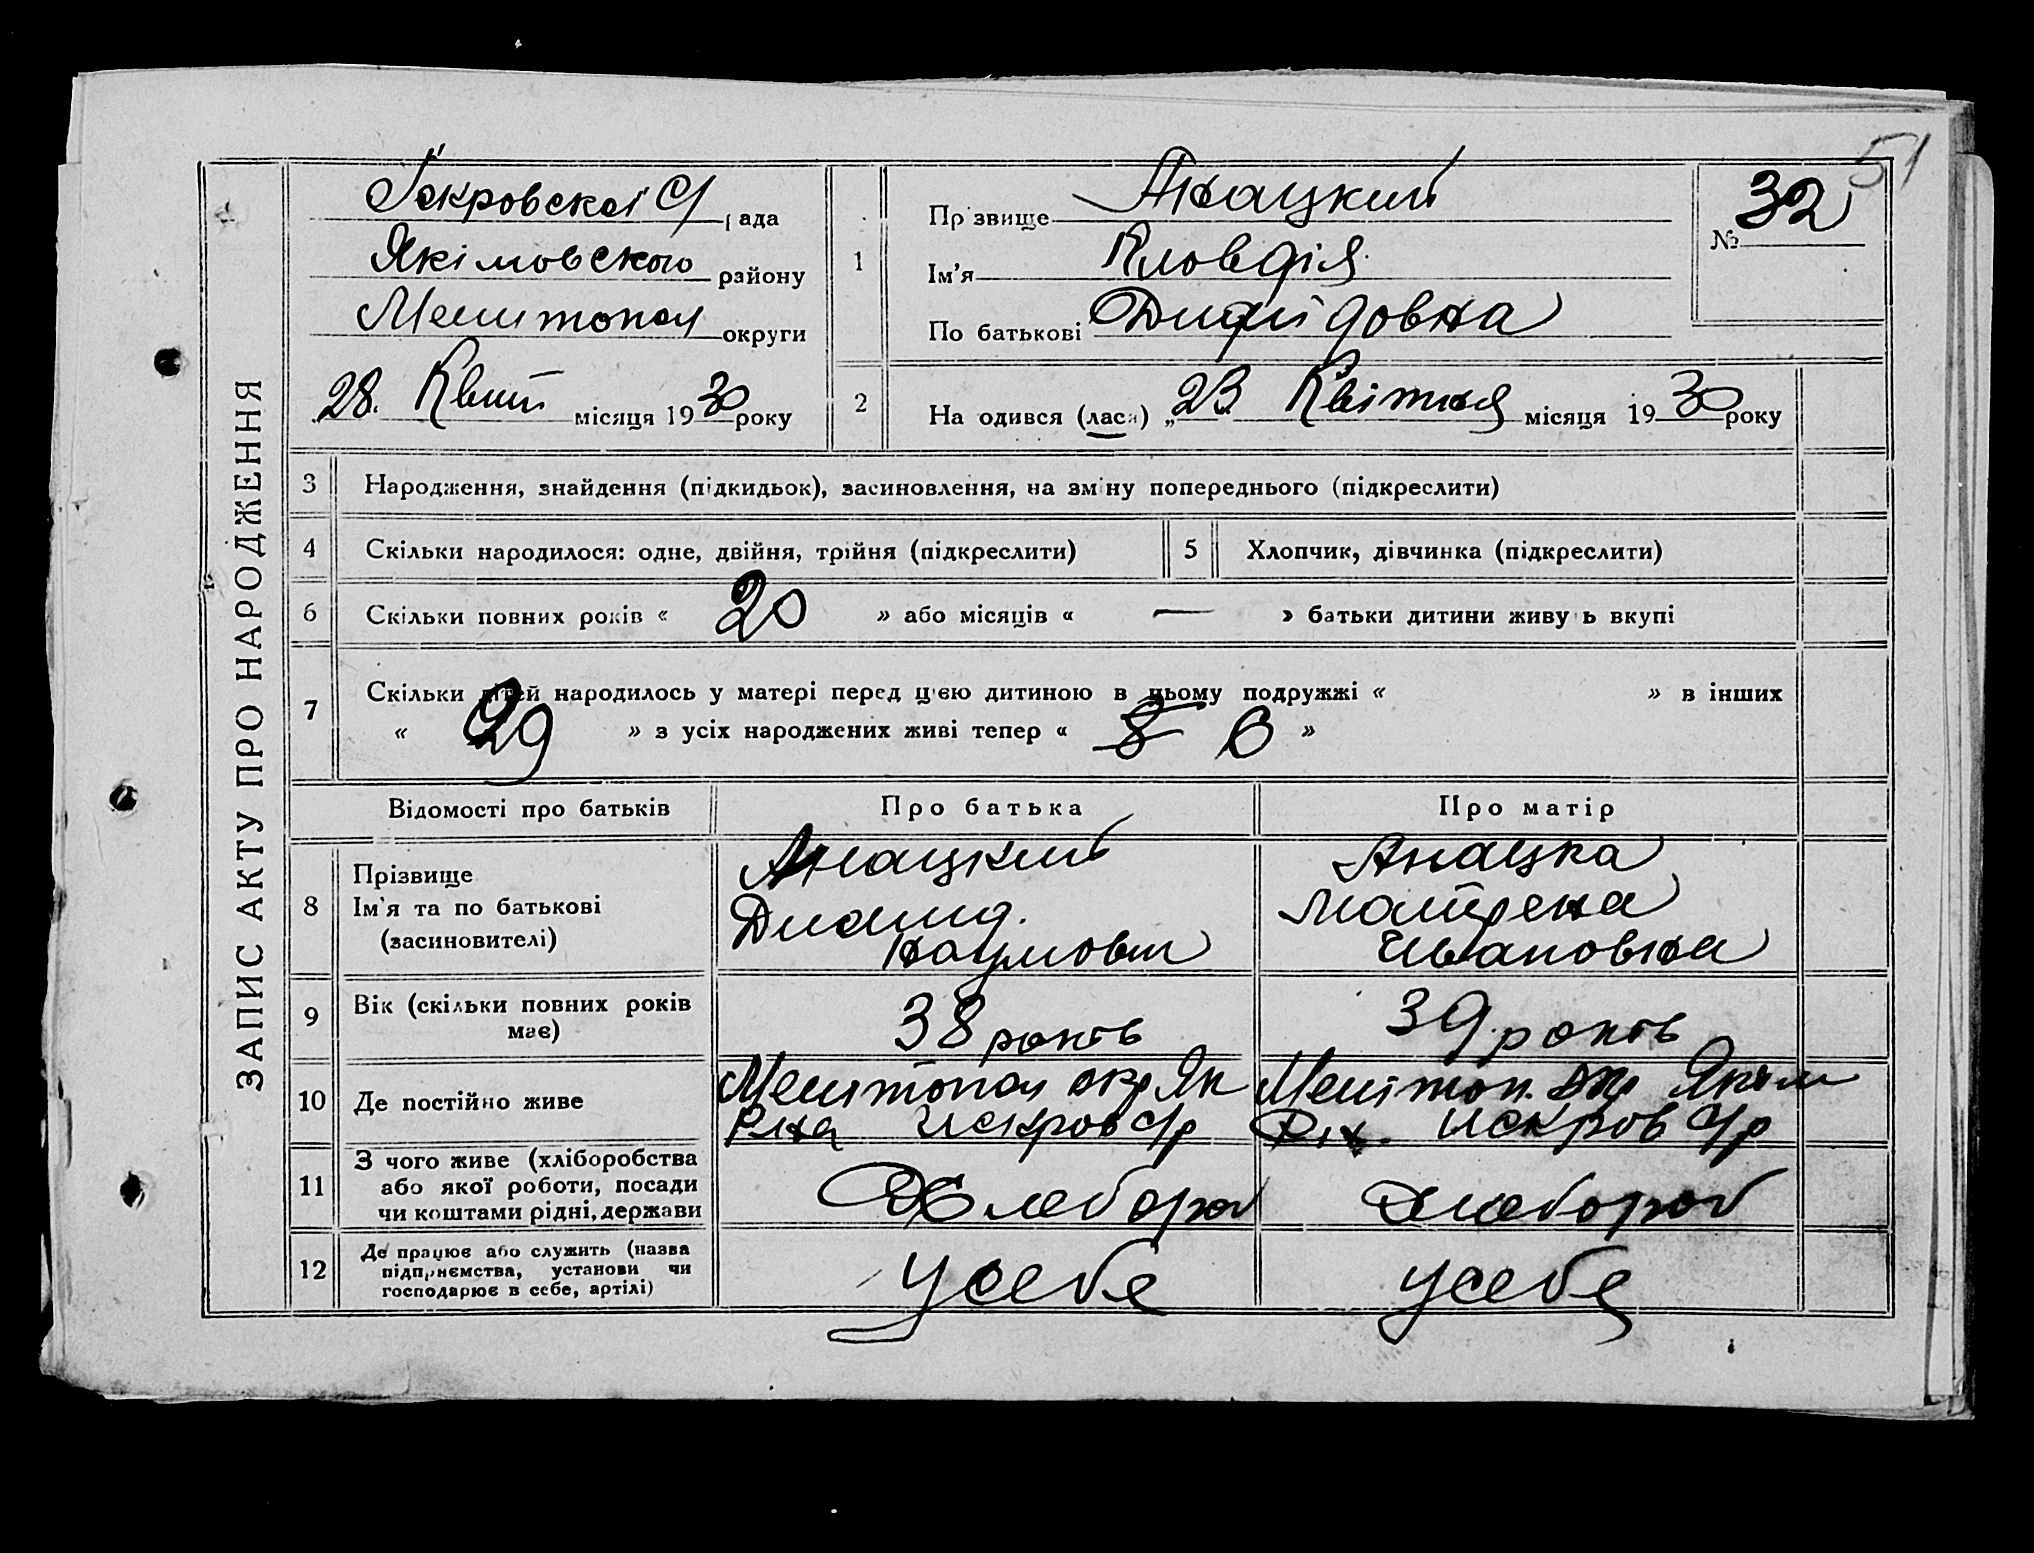 51
ЗАПИС АКТУ ПРО НАРОДЖЕННЯ
рада
Якімовского району
Мелитопол округи
28. Квит місяця 1930 року
1
Прізвище Анацкий
Ім'я Кловдія
По батькові
№ 32
2 На одився (лася) „23 Квітня місяця 1930 року
3 Народження, знайдення (підкидьок), засиновлення, на зміну попереднього (підкреслити)
4 Скільки народилося: одне, двійня, трійня (підкреслити)
5 Хлопчик, дівчинка (підкреслити)
6 Скільки повних років « 20 » або місяців « — » батьки дитини живуть вкупі
7 Скільки дітей народилось у матері перед цією дитиною в цьому подружжі « » в інших
« 9 » з усіх народжених живі тепер « 8 6 »
Відомості про батьків
Про батька
Про матір
8 Прізвище
Ім'я та по батькові
(засиновителі)
Анацкий
Наумович
Анацка
Матрена
Ивановна
9 Вік (скільки повних років
має)
38 років
39 років
10 Де постійно живе
Мелитопол окр Як
Р-на С/р
Мелітоп. окр Яким
Р-н. С/р
11 З чого живе (хліборобства
або якої роботи, посади
чи коштами рідні, держави
Хлебороб
Хлебороб
12 Де працює або служить (назва
підприємства, установи чи
господарює в себе, артілі)
у себе
у себе